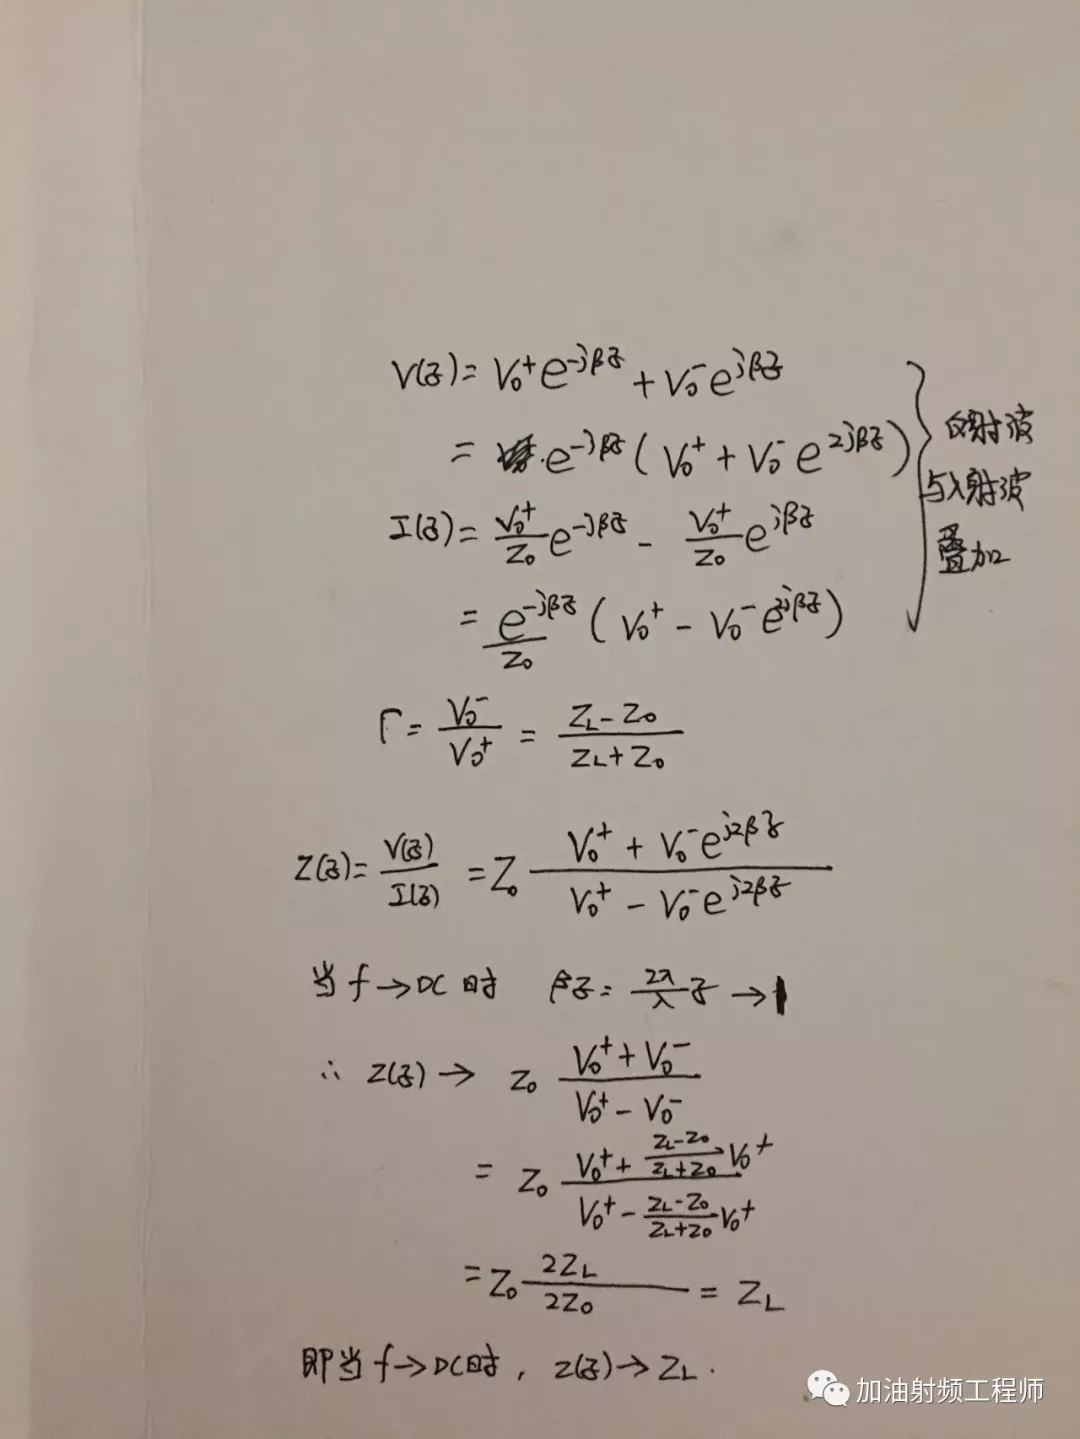 V(z) = V₀⁺e^{-jβz} + V₀⁻e^{jβz}
= e^{-jβz} ( V₀⁺ + V₀⁻ e^{2jβz} )
I(z) = \frac{V₀⁺}{Z₀} e^{-jβz} - \frac{V₀⁺}{Z₀} e^{jβz}
= \frac{e^{-jβz}}{Z₀} ( V₀⁺ - V₀⁻ e^{2jβz} )
反射波
与入射波
叠加
Γ = \frac{V₀⁻}{V₀⁺} = \frac{Z_L - Z₀}{Z_L + Z₀}
Z(z) = \frac{V(z)}{I(z)} = Z₀ \frac{V₀⁺ + V₀⁻ e^{j2βz}}{V₀⁺ - V₀⁻ e^{j2βz}}
当 f → DC 时 βz = \frac{2λ}{λ} z → 1
∴ Z(z) → Z₀ \frac{V₀⁺ + V₀⁻}{V₀⁺ - V₀⁻}
= Z₀ \frac{V₀⁺ + \frac{Z_L - Z₀}{Z_L + Z₀} V₀⁺}{V₀⁺ - \frac{Z_L - Z₀}{Z_L + Z₀} V₀⁺}
= Z₀ \frac{2Z_L}{2Z₀} = Z_L
即当 f → DC 时, Z(z) → Z_L.
加油射频工程师